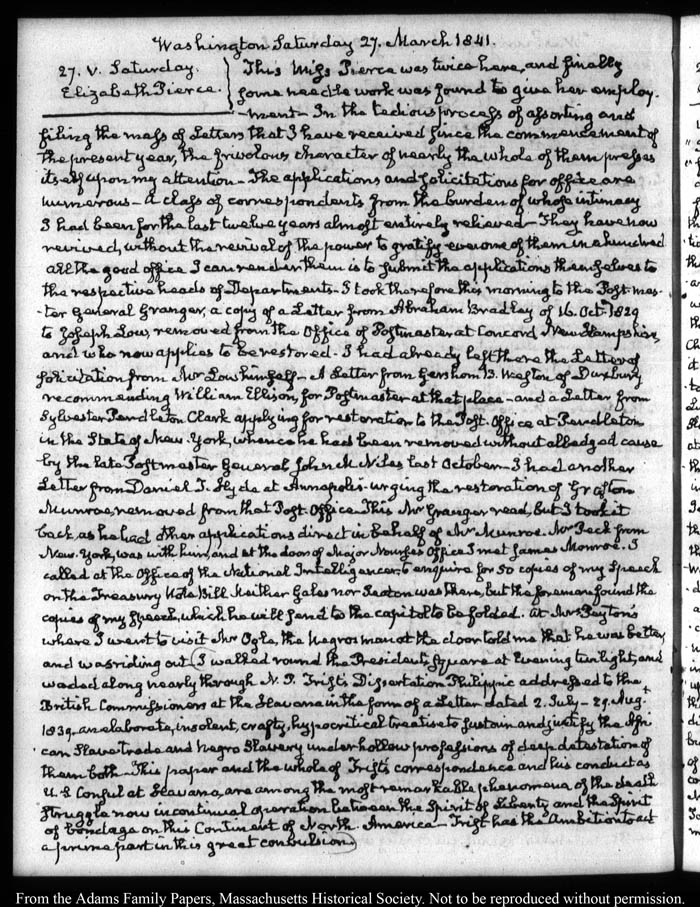 Washington Saturday 27. March 1841.
27. V. Saturday.
Elizabeth Pierce.
This Miss Pierce was twice here, and finally
some needle work was found to give her employ-
-ment – In the tedious process of assorting and
filing the mass of Letters that I have received since the commencement of
the present year, the frivolous character of nearly the whole of them presses
itself upon my attention – The applications and solicitations for office are
numerous – A class of correspondents from the burden of whose intimacy
I had been for the last twelve years almost entirely relieved – They have now
revived, without the revival of the power to gratify even one of them in a hundred
All the good office I can render them is to submit the applications themselves to
the respective heads of Departments – I took therefore this morning to the Post-mas-
-ter General Granger, a copy of a Letter from Abraham Bradley of 16. Oct. 1829
to Joseph Low, removed from the Office of Postmaster at Concord New Hampshire,
and who now applies to be restored – I had already left there the Letter of
solicitation from Mr Low himself – A Letter from Gershom B. Weston of Duxbury
recommending William Ellison, for Postmaster at that place – and a Letter from
Sylvester Pendleton Clark applying for restoration to the Post-Office at Pendleton
in the State of New-York, whence he had been removed without alledged cause
by the late Postmaster General John M Niles last October – I had another
Letter from Daniel T. Hyde at Annapolis urging the restoration of Grafton
Munroe, removed from that Post-Office. This Mr Granger read, but I took it
back, as he had other applications direct in behalf of Mr Munroe. Mr Peck from
New-York, was with him, and at the door of Major Nourse's Office I met James Monroe. I
called at the Office of the National Intelligencer, to enquire for 50 copies of my Speech
on the Treasury Note Bill. Neither Gales nor Seaton was there, but the foreman found the
copies of my speech, which he will send to the capitol to be folded. At Mrs Peyton's
where I went to visit Mr Ogle, the Negro man at the door told me that he was better
and was riding out (I walked round the President's Square at Evening twilight, and
waded along nearly through N. P. Trist's Dissertation Philippic addressed to the
British Commissioners at the Havana in the form of a Letter dated 2. July – 29. Aug.
1839. an elaborate, insolent, crafty, hypocritical treatise to sustain and justify the Afri-
can Slave trade and Negro Slavery under hollow professions of deep detestation of
them both – This paper and the whole of Trist's correspondence and his conduct as
U. S Consul at Havana, are among the most remarkable phenomena of the death
struggle now in continual operation between the Spirit of Liberty and the Spirit
of bondage on this Continent of North-America – Trist has the Ambition to act
a prime part in this great convulsion)
From the Adams Family Papers, Massachusetts Historical Society. Not to be reproduced without permission.